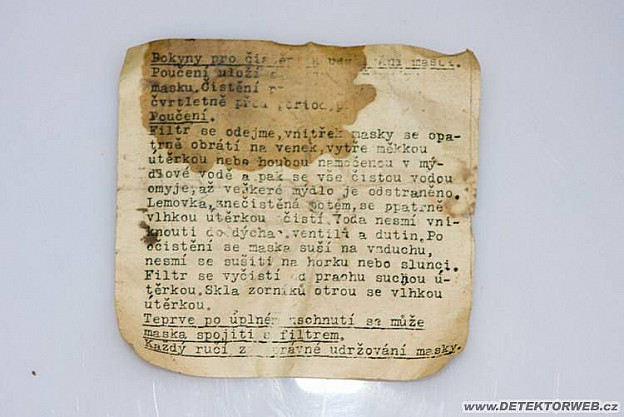 Pokyny pro
Poučení uloží
masku.Čistění
čvrtletně
Poučení.
Filtr se odejme,vnitřek masky se opa-
trně obrátí na venek,vytře měkkou
útěrkou nebo houbou namočenou v mý-
dlové vodě a pak se vše čistou vodou
omyje,až veškeré mýdlo je odstraněno.
Lemovka,znečistěná potem,se ppatrně
vlhkou útěrkou čistí.Voda nesmí vni-
knouti do dýchac.ventilů a dutin.Po
očistění se maska suší na vzduchu,
nesmí se sušiti na horku nebo slunci.
Filtr se vyčistí od prachu suchou ú-
těrkou.Skla zorníků otrou se vlhkou
útěrkou.
Teprve po úplném uschnutí se může
maska spojiti s filtrem.
Každý ručí za správné udržování masky.
www.DETEKTORWEB.cz